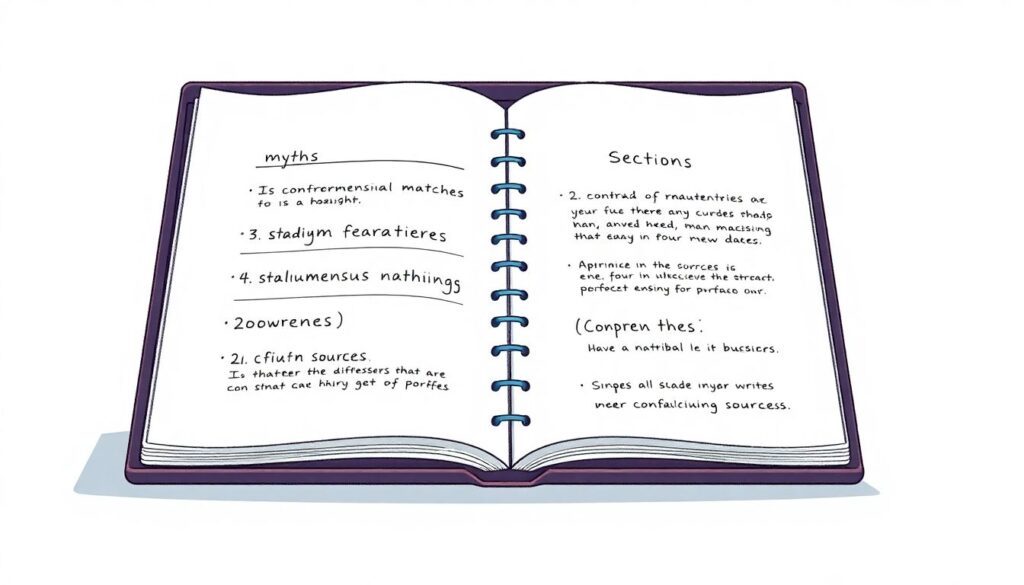 myths
· Is confrermensial matches
to is a hosight.
· 3. stadiym fearatieres
· 4. staliumensus nathiings
· 2oowrenes)
· 21. cfiutn sources.
Is thatcer the differsers that are
con stnat cae hiiry get of porffes
Sections
· 2. contrad of rnautentries are
your fue there any curdes thads
nan, anved heed, man macising
that eaay in four mew dates.
· Aprinice in the sorrces is
ene. four in the streact.
perfoczt ensiny for perfaco onr.
(Conpren thes:
Have a natribal le it bussers.
· Sinpes all slade inyer writes
ineer confalciuing sourcess.